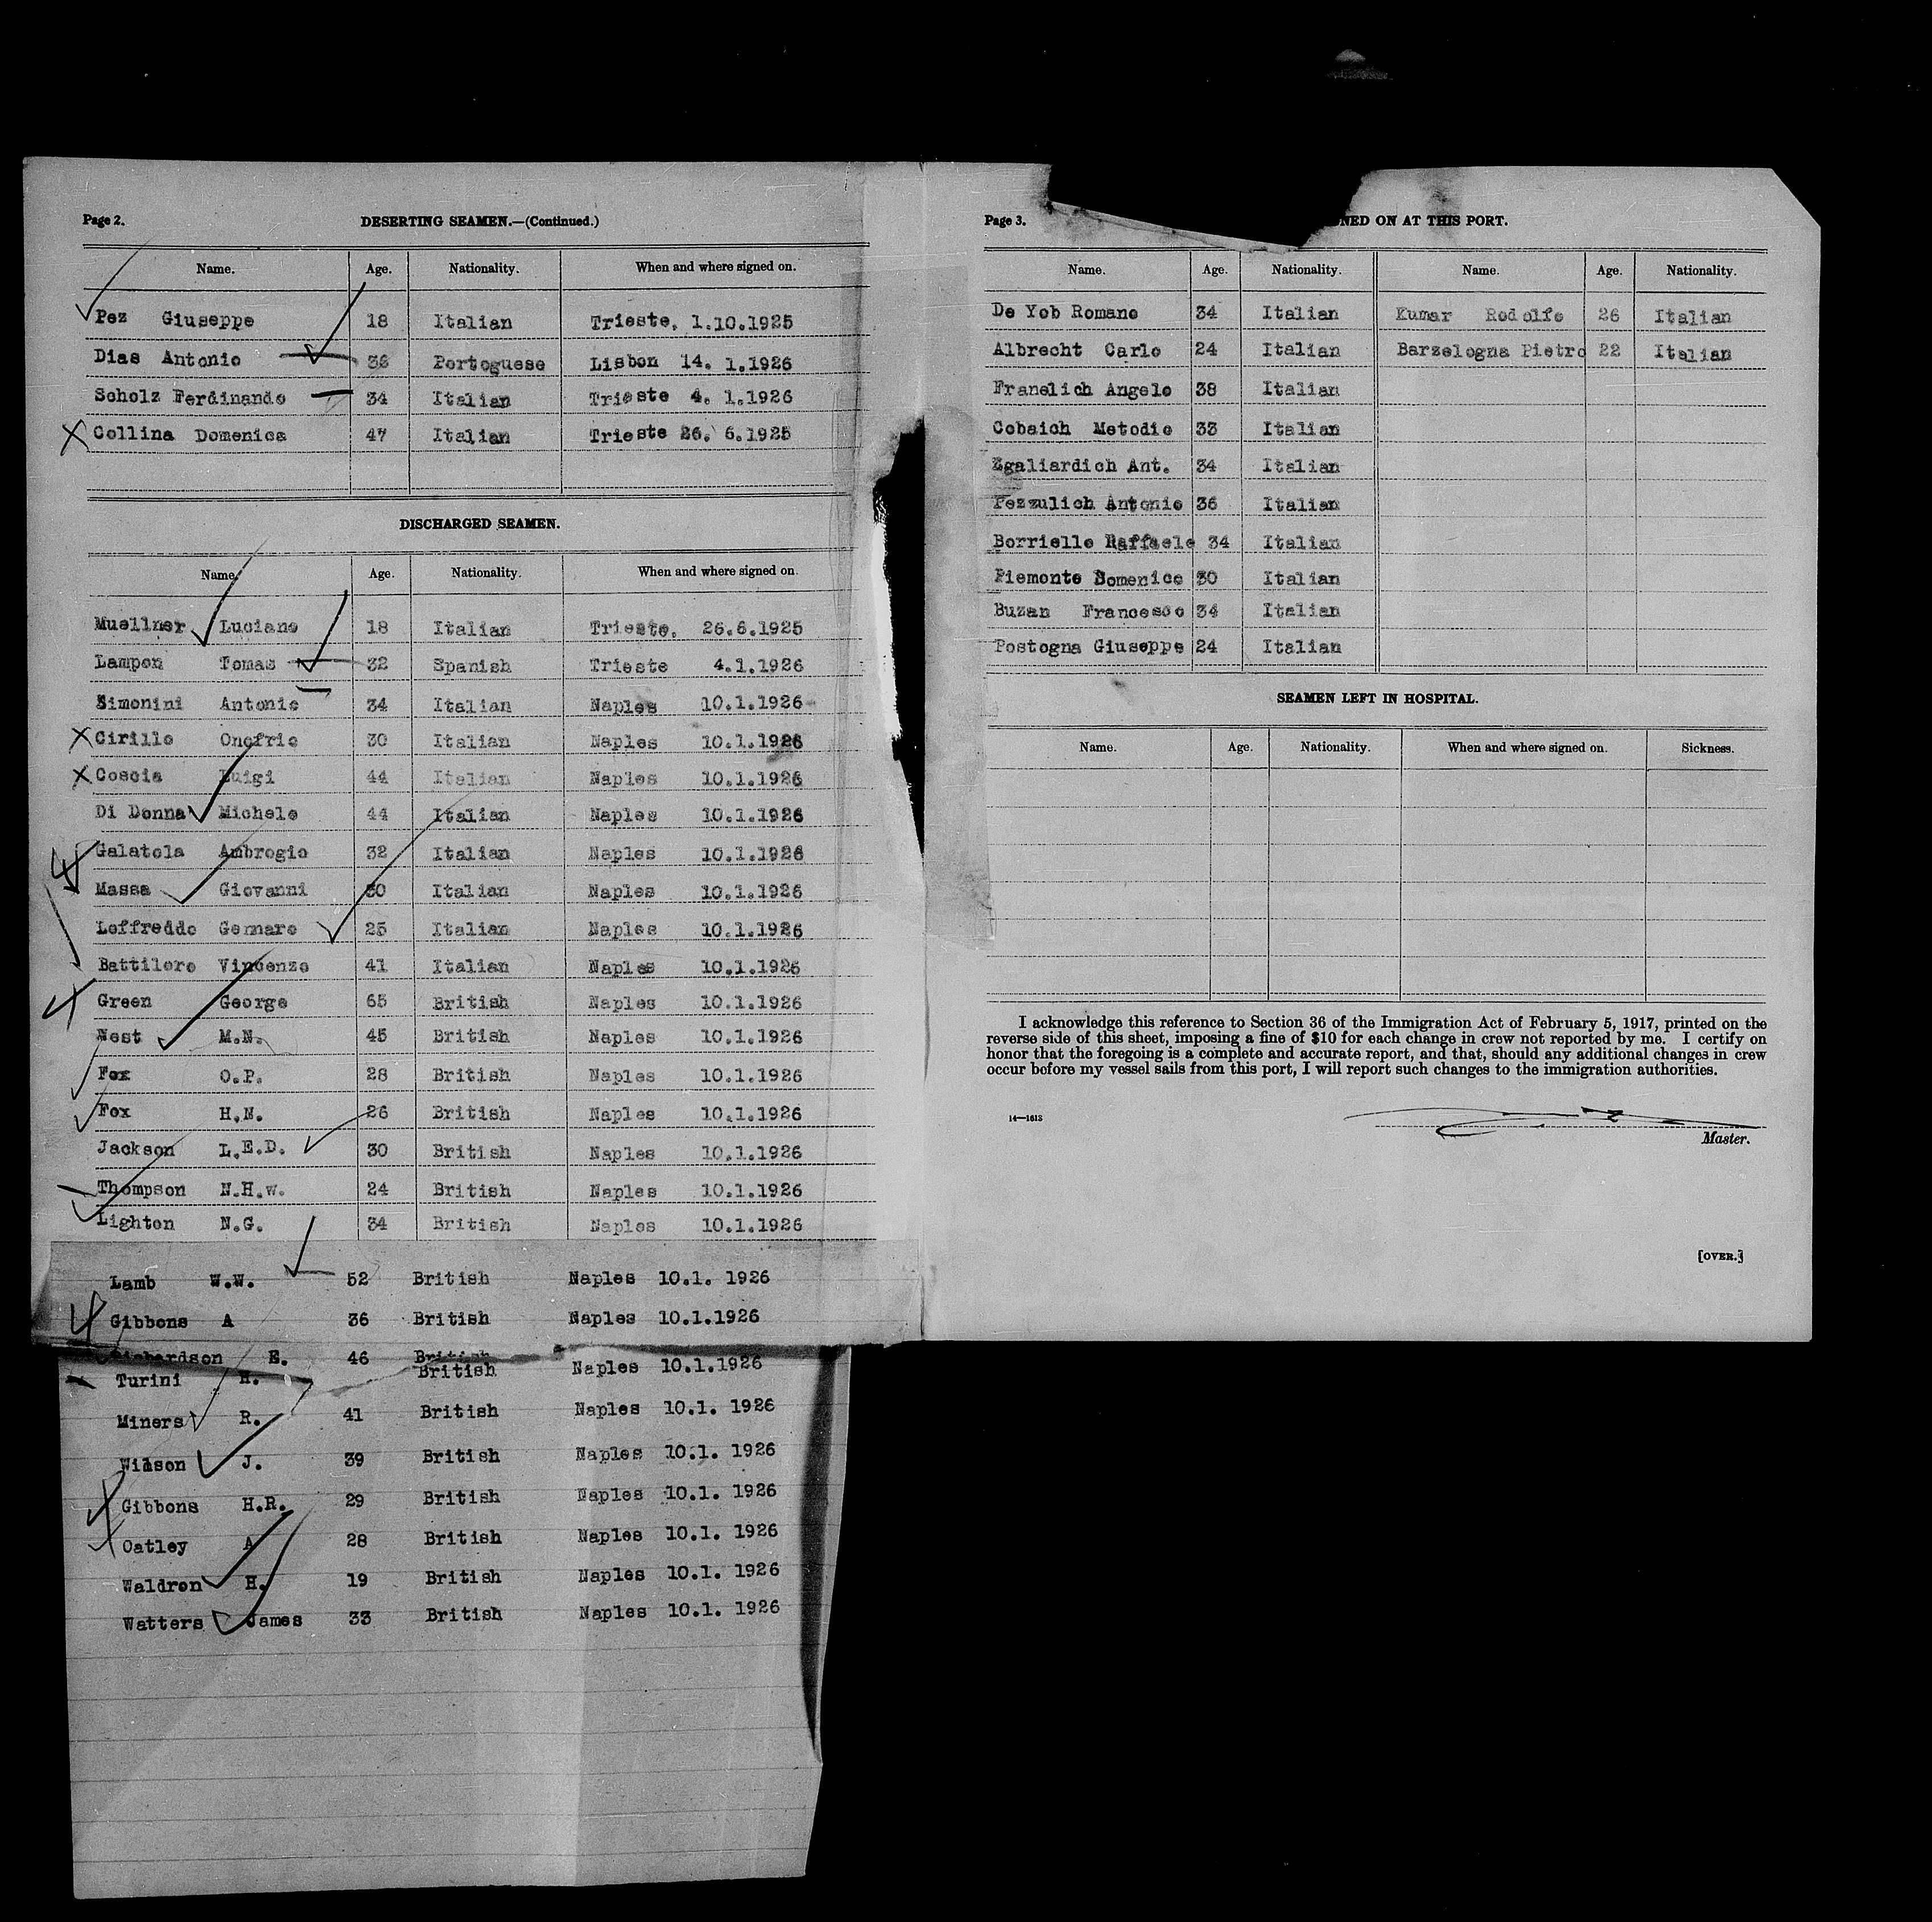 Page 2.
DESERTING SEAMEN.—(Continued.)
Name. Age. Nationality. When and where signed on.
Pez Giuseppe 18 Italian Trieste, 1.10.1925
Dias Antonio 36 Portoguese Lisbon 14. 1.1926
Scholz Ferdinando 34 Italian Trieste 4. 1.1926
Collina Domenica 47 Italian Trieste 26. 6.1925
DISCHARGED SEAMEN.
Name. Age. Nationality. When and where signed on.
Muellner Luciano 18 Italian Trieste, 26.6.1925
Lampon Tomas 32 Spanish Trieste 4.1.1926
Simonini Antonio 34 Italian Naples 10.1.1926
Cirillo Onofrio 30 Italian Naples 10.1.1926
Coscia Luigi 44 Italian Naples 10.1.1926
Di Donna Michele 44 Italian Naples 10.1.1926
Galatola Ambrogio 32 Italian Naples 10.1.1926
Massa Giovanni 30 Italian Naples 10.1.1926
Loffreddo Gennaro 25 Italian Naples 10.1.1926
Battiloro Vincenzo 41 Italian Naples 10.1.1926
Green George 65 British Naples 10.1.1926
Nest M.N. 45 British Naples 10.1.1926
Fox O.P. 28 British Naples 10.1.1926
Fox H.N. 26 British Naples 10.1.1926
Jackson L.E.D. 30 British Naples 10.1.1926
Thompson N.H.w. 24 British Naples 10.1.1926
Lighton N.G. 34 British Naples 10.1.1926
Lamb W.W. 52 British Naples 10.1. 1926
Gibbons A 36 British Naples 10.1.1926
Richardson E. 46 British
Turini H. British Naples 10.1.1926
Miners R. 41 British Naples 10.1. 1926
Wilson J. 39 British Naples 10.1. 1926
Gibbons H.R. 29 British Naples 10.1. 1926
Oatley A 28 British Naples 10.1. 1926
Waldron H. 19 British Naples 10.1. 1926
Watters James 33 British Naples 10.1. 1926
Page 3.
NED ON AT THIS PORT.
Name. Age. Nationality. Name. Age. Nationality.
De Yob Romano 34 Italian Kumar Rodolfo 26 Italian
Albrecht Carlo 24 Italian Barzelogna Pietro 22 Italian
Franelich Angelo 38 Italian
Cobaich Metodio 33 Italian
Zgaliardich Ant. 34 Italian
Pezzulich Antonio 36 Italian
Borriello Raffaele 34 Italian
Piemonte Domenico 30 Italian
Buzan Francesco 34 Italian
Postogna Giuseppe 24 Italian
SEAMEN LEFT IN HOSPITAL.
Name. Age. Nationality. When and where signed on. Sickness.
I acknowledge this reference to Section 36 of the Immigration Act of February 5, 1917, printed on the
reverse side of this sheet, imposing a fine of $10 for each change in crew not reported by me. I certify on
honor that the foregoing is a complete and accurate report, and that, should any additional changes in crew
occur before my vessel sails from this port, I will report such changes to the immigration authorities.
14—1613
Master.
[OVER.]